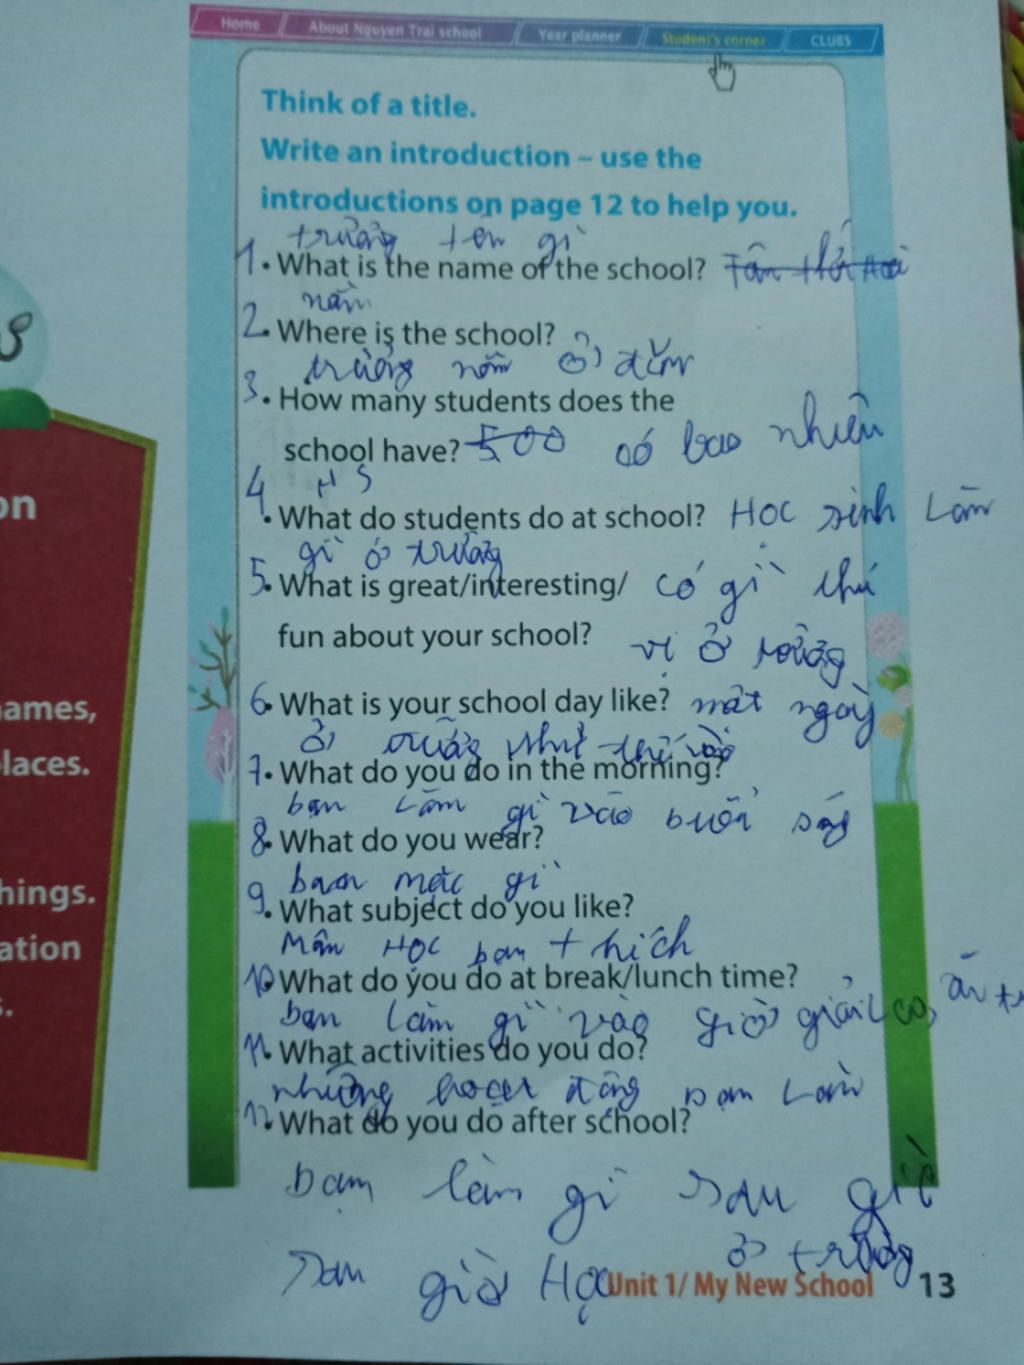 Home About Nguyen Trai school Year planner Student's corner CLUBS
Think of a title.
Write an introduction – use the
introductions on page 12 to help you.
trường tên gì
1. What is the name of the school?
nằm
2. Where is the school?
trường nằm ở đâu
3. How many students does the
school have? 500 có bao nhiêu
HS
4. What do students do at school? Học sinh Làm
gì ở trường
5. What is great/interesting/ có gì thú
fun about your school? vị ở trường
6. What is your school day like? một ngày
ở trường như thế nào
7. What do you do in the morning?
bạn Làm gì vào buổi sáng
8. What do you wear?
bạn mặc gì
9. What subject do you like?
Môn Học bạn thích
10 What do you do at break/lunch time?
bạn làm gì vào giờ giải Lao, ăn
11. What activities do you do?
những hoạt động bạn Làm
12 What do you do after school?
bạn làm gì sau giờ
ở trường
sau giờ Học
Unit 1/ My New School 13
on
ames,
laces.
hings.
ation
s.